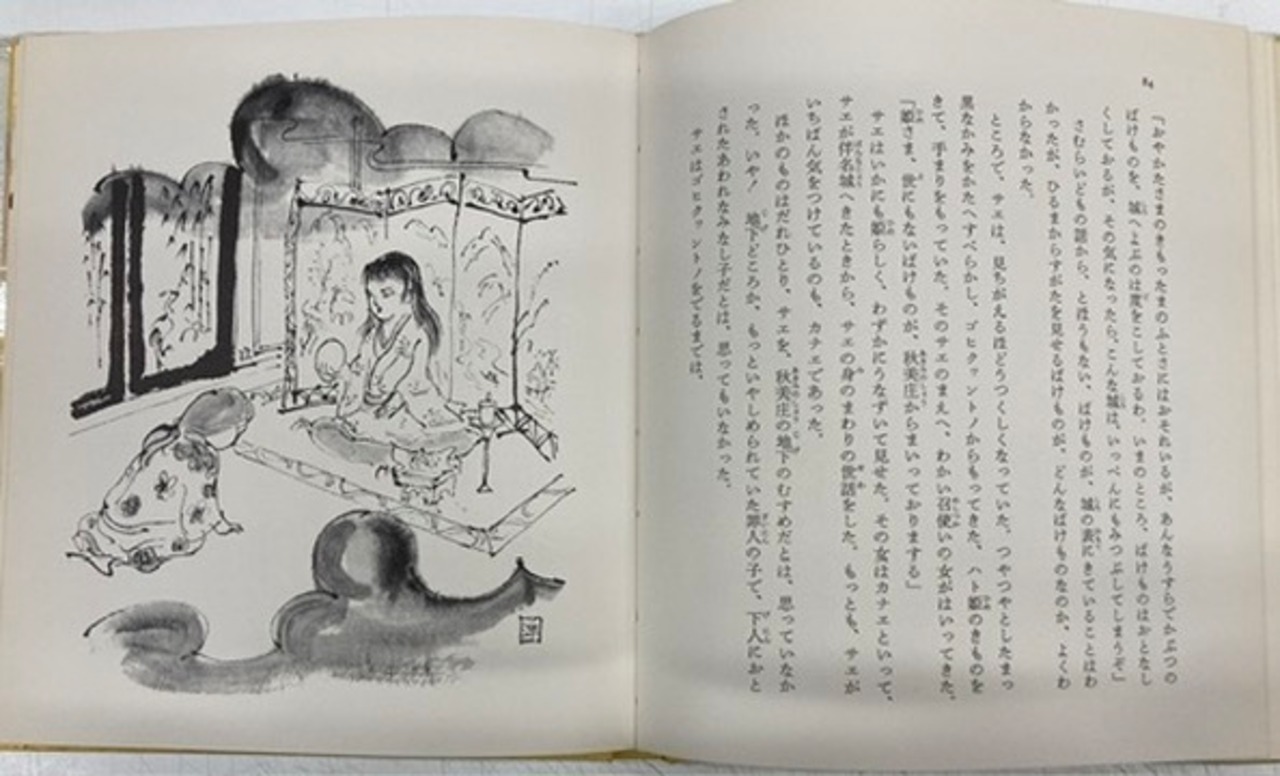 84
「おやかたさまのきもったまのふとさにはおそれいるが、あんなうすらでかぶつの
ばけものを、城へよぶのは度をこしておるわ。いまのところ、ばけものはおとなし
くしておるが、その気になったら、こんな城は、いっぺんにもみつぶしてしまうぞ」
さむらいどもの話から、とほうもない、ばけものが、城の表にきていることはわ
かったが、ひるまからすがたを見せるばけものが、どんなばけものなのか、よくわ
からなかった。
ところで、サエは、見ちがえるほどうつくしくなっていた。つやつやとしたまっ
黒なかみをかたへすべらかし、ゴヒクヮントノからもってきた、ハト姫のきものを
きて、手まりをもっていた。そのサエのまえへ、わかい召使いの女がはいってきた。
「姫さま、世にもないばけものが、秋美庄からまいっておりまする」
サエはいかにも姫らしく、わずかにうなずいて見せた。その女はカナエといって、
サエが伴名城へきたときから、サエの身のまわりの世話をした。もっとも、サエが
いちばん気をつけているのも、カナエであった。
ほかのものはだれひとり、サエを、秋美庄の地下のむすめだとは、思っていなか
った。いや！ 地下どころか、もっといやしめられていた罪人の子で、下人におと
されたあわれなみなし子だとは、思ってもいなかった。
サエはゴヒクヮントノをでるまでは、